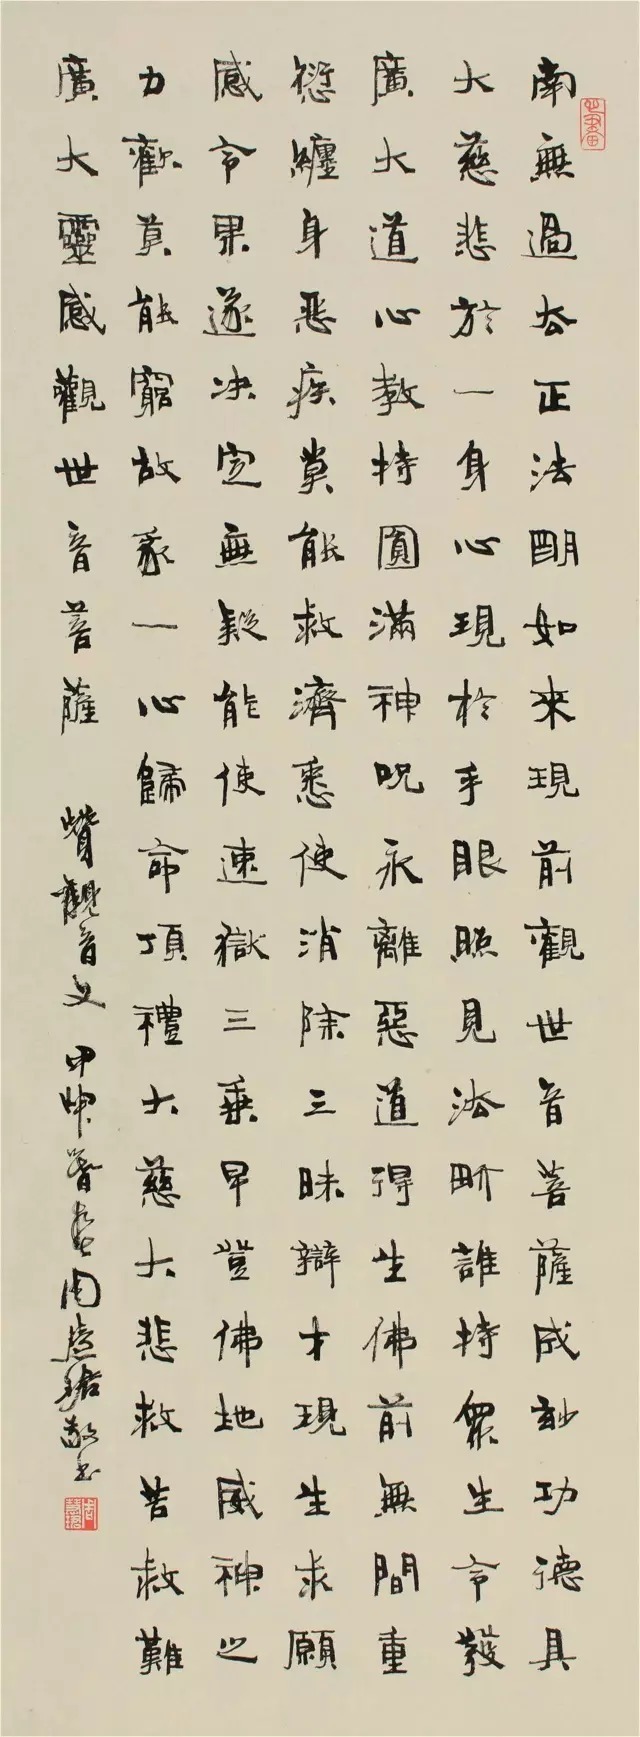 南無過去正法眀如來現前觀世音菩薩成玅功德具
大慈悲於一身心現於手眼照見法界護持眾生令發
廣大道心教持圓滿神呪永離惡道得生佛前無間重
愆纏身惡疾莫能救濟悉使消除三昧辯才現生求願
感令果遂決定無疑能使速獄三乘早登佛地威神之
力歡莫能窮故我一心歸命頂禮大慈大悲救苦救難
廣大靈感觀世音菩薩 贊觀音文 甲申暮春周慧珺敬書
周慧珺